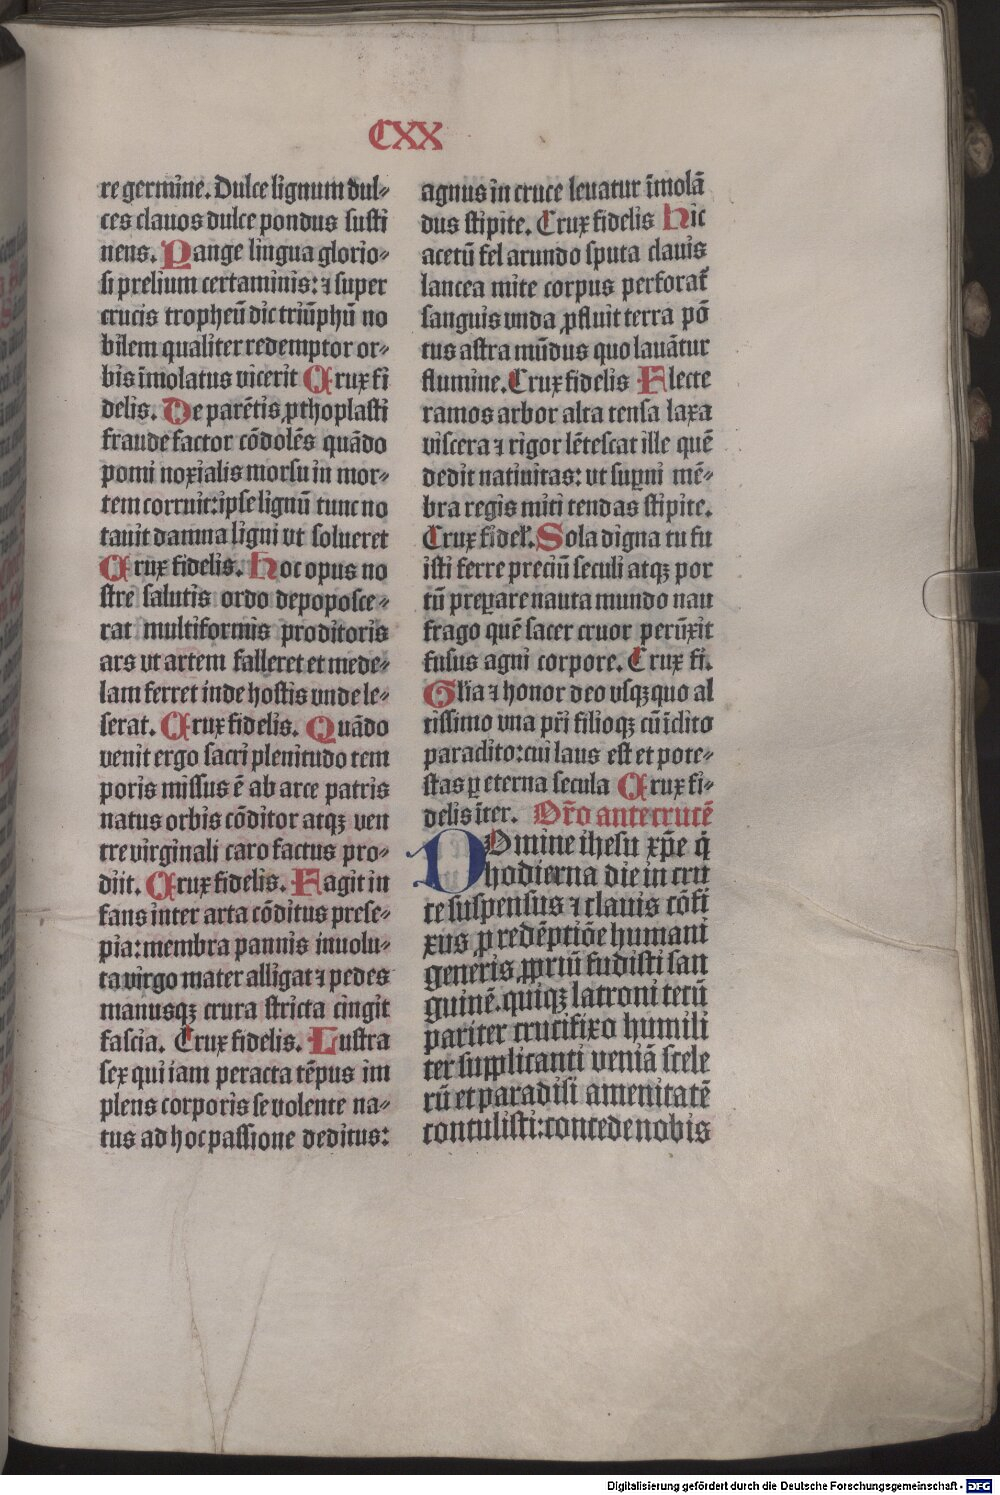 CXX
re germine. Dulce lignum dul⸗
ces clauos dulce pondus susti
nens. Pange lingua glorio⸗
si prelium certaminis: ⁊ super
crucis tropheū dic triūphū no
bilem qualiter redemptor or⸗
bis īmolatus vicerit Crux fi
delis. De parētis ꝓthoplasti
fraude factor cōdolēs quādo
pomi noxialis morsu in mor⸗
tem corruit: ipse lignū tunc no
tauit damna ligni vt solueret
Crux fidelis. Hoc opus no
stre salutis ordo depoposce⸗
rat multiformis proditoris
ars vt artem falleret et mede⸗
lam ferret inde hostis vnde le⸗
serat. Crux fidelis. Quādo
venit ergo sacri plenitudo tem
poris missus ē ab arce patris
natus orbis cōditor atqꝫ ven
tre virginali caro factus pro⸗
diit. Crux fidelis. Uagit in
fans inter arta cōditus prese⸗
pia: membra pannis inuolu⸗
ta virgo mater alligat ⁊ pedes
manusqꝫ crura stricta cingit
fascia. Crux fidelis. Lustra
sex qui iam peracta tēpus im
plens corporis se volente na⸗
tus ad hoc passione deditus:
agnus in cruce leuatur īmolā
dus stipite. Crux fidelis Hic
acetū fel arundo sputa clauis
lancea mite corpus perforat̄
sanguis vnda ꝓfluit terra pō
tus astra mūdus quo lauātur
flumine. Crux fidelis Flecte
ramos arbor alta tensa laxa
viscera ⁊ rigor lētescat ille quē
dedit natiuitas: vt suꝑni mē⸗
bra regis miti tendas stipite.
Crux fidel̄. Sola digna tu fu
isti ferre preciū seculi atqꝫ por
tū preꝑare nauta mundo nau
frago quē sacer cruor perūxit
fusus agni corpore. Crux fi.
Glīa ⁊ honor deo vsqꝫquo al
tissimo vna pr̄i filioqꝫ cū īclito
paraclito: cui laus est et pote⸗
stas ꝑ eterna secula Crux fi⸗
delis īter. Or̄o ante crucē
DOmine ihesu xp̄e q̄
hodierna die in cru
ce suspensus ⁊ clauis cōfi
xus ꝓ redēptiōe humani
generis ꝓpriū fudisti san
guinē. quiqꝫ latroni tecū
pariter crucifixo humili
ter supplicanti veniā scele
rū et paradisi amenitatē
contulisti: concede nobis
Digitalisierung gefördert durch die Deutsche Forschungsgemeinschaft - DFG